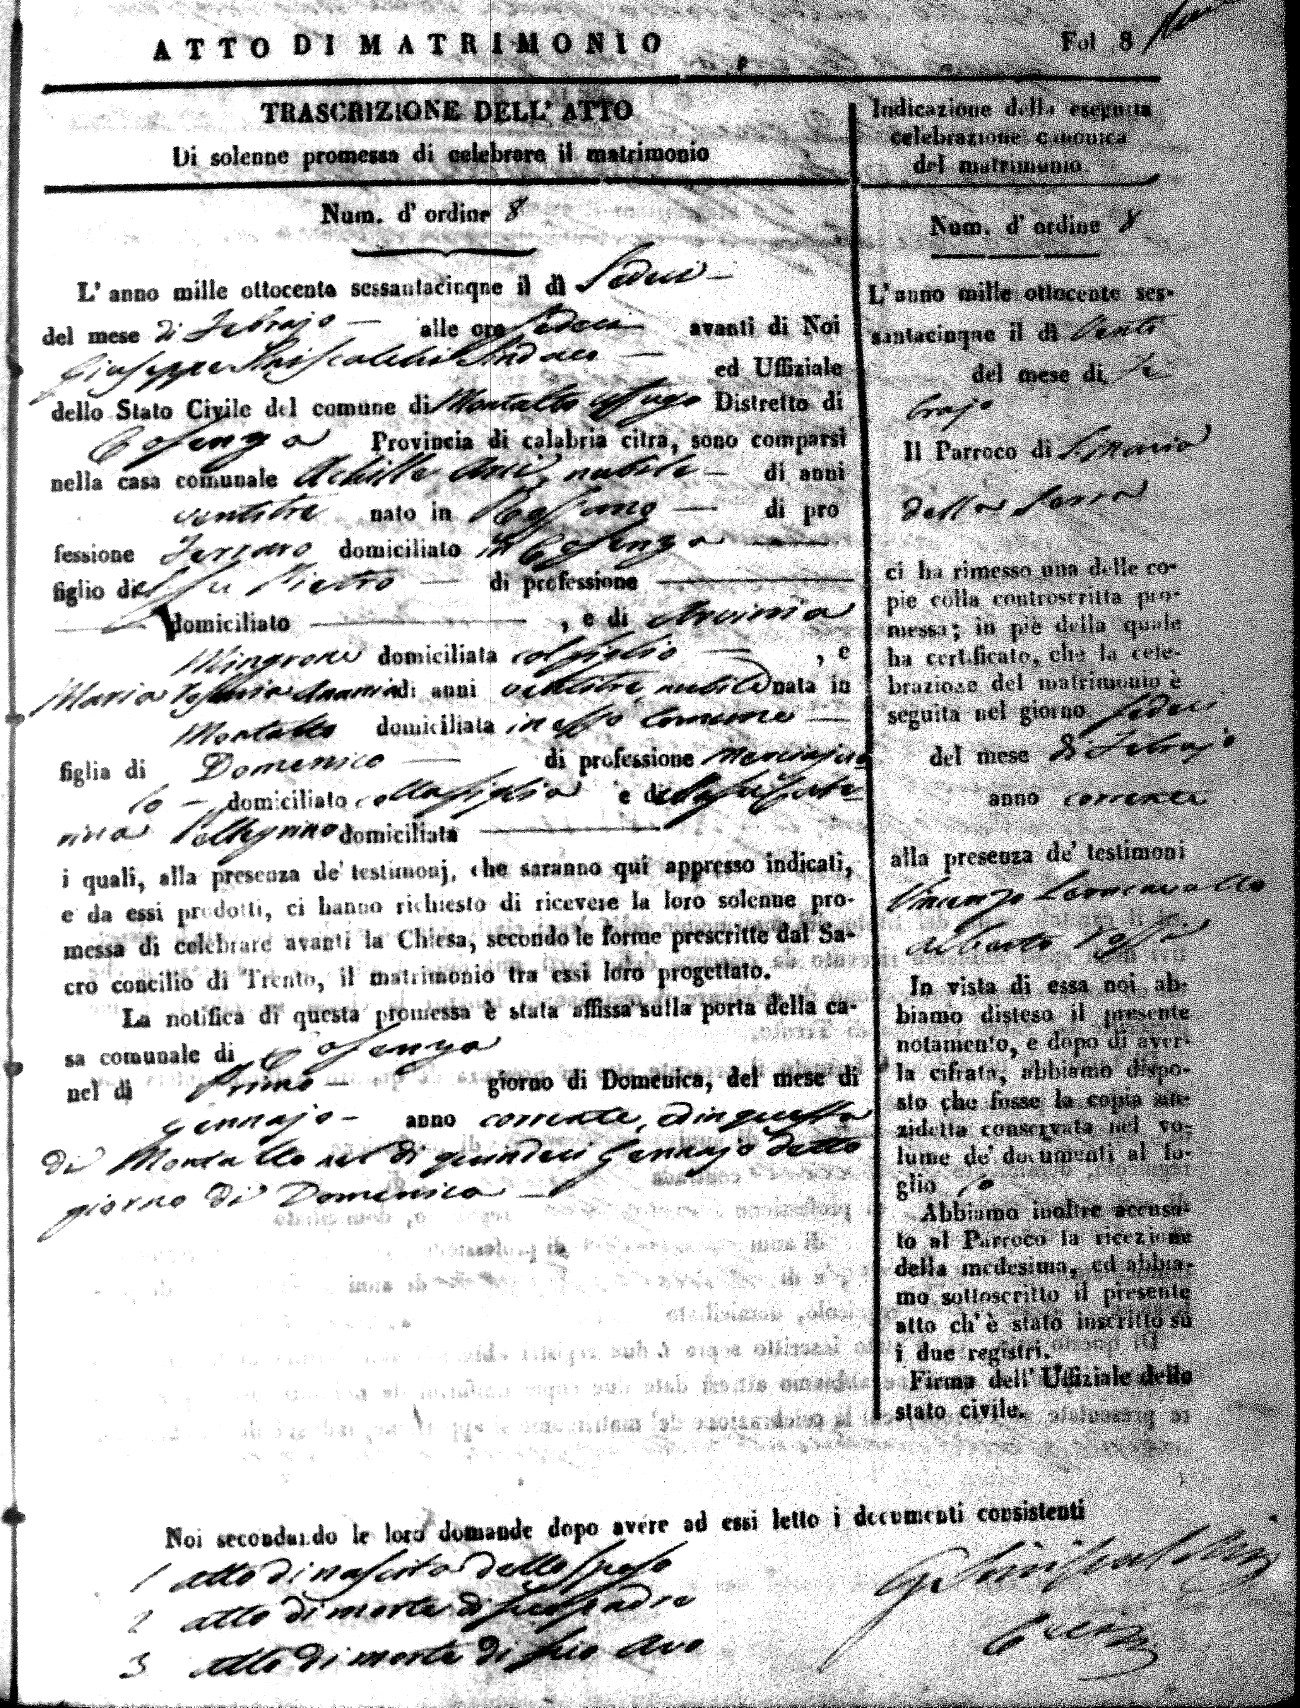 ATTO DI MATRIMONIO
Fol 8
TRASCRIZIONE DELL' ATTO
Di solenne promessa di celebrare il matrimonio
Num. d' ordine 8
L' anno mille ottocento sessantacinque il dì Sedici
del mese di Febrajo alle ore Sedeci avanti di Noi
Giuseppe Siniscalchi Sindaco ed Uffiziale
dello Stato Civile del comune di Montalto Uffugo Distretto di
Cosenza Provincia di calabria citra, sono comparsi
nella casa comunale Achille nubile di anni
ventitre nato in Rossano di pro
fessione Ferraro domiciliato in Cosenza
figlio del fu Pietro di professione
domiciliato , e di
Mingrone domiciliata col figlio , e
Maria di anni ventitre, nubile nata in
Montalto domiciliata in esso Comune
figlia di Domenico di professione
lo domiciliato colla figlia e di
Pellegrino domiciliata
i quali, alla presenza de' testimonj, che saranno qui appresso indicati,
e da essi prodotti, ci hanno richiesto di ricevere la loro solenne pro-
messa di celebrare avanti la Chiesa, secondo le forme prescritte dal Sa-
cro concilio di Trento, il matrimonio tra essi loro progettato.
La notifica di questa promessa è stata affissa sulla porta della ca-
sa comunale di Cosenza
nel dì Primo giorno di Domenica, del mese di
Gennajo anno corrente, ed in questa
di Montalto nel dì quindeci Gennajo detto
giorno di Domenica
Noi secondando le loro domande dopo avere ad essi letto i documenti consistenti
1 atto di nascita dello sposo
2 atto di morte di suo padre
3 atto di morte di suo avo
Indicazione della eseguita
celebrazione canonica
del matrimonio
Num. d' ordine 8
L' anno mille ottocento ses-
santacinque il dì Venti
del mese di Fe
brajo
Il Parroco di S. Maria
della Serra
ci ha rimesso una delle co-
pie colla controscritta pro-
messa; in piè della quale
ha certificato, che la cele-
brazione del matrimonio è
seguita nel giorno Sedeci
del mese di Febrajo
anno corrente
alla presenza de' testimoni
Vincenzo Leoncavallo
Alberto
In vista di essa noi ab-
biamo disteso il presente
notamento, e dopo di aver-
la cifrata, abbiamo dispo-
sto che fosse la copia an-
zidetta conservata nel vo-
lume de' documenti al fo-
glio 10
Abbiamo inoltre accusa-
to al Parroco la ricezione
della medesima, ed abbia-
mo sottoscritto il presente
atto ch' è stato inscritto su
i due registri.
Firma dell' Uffiziale dello
stato civile.
G Siniscalchi